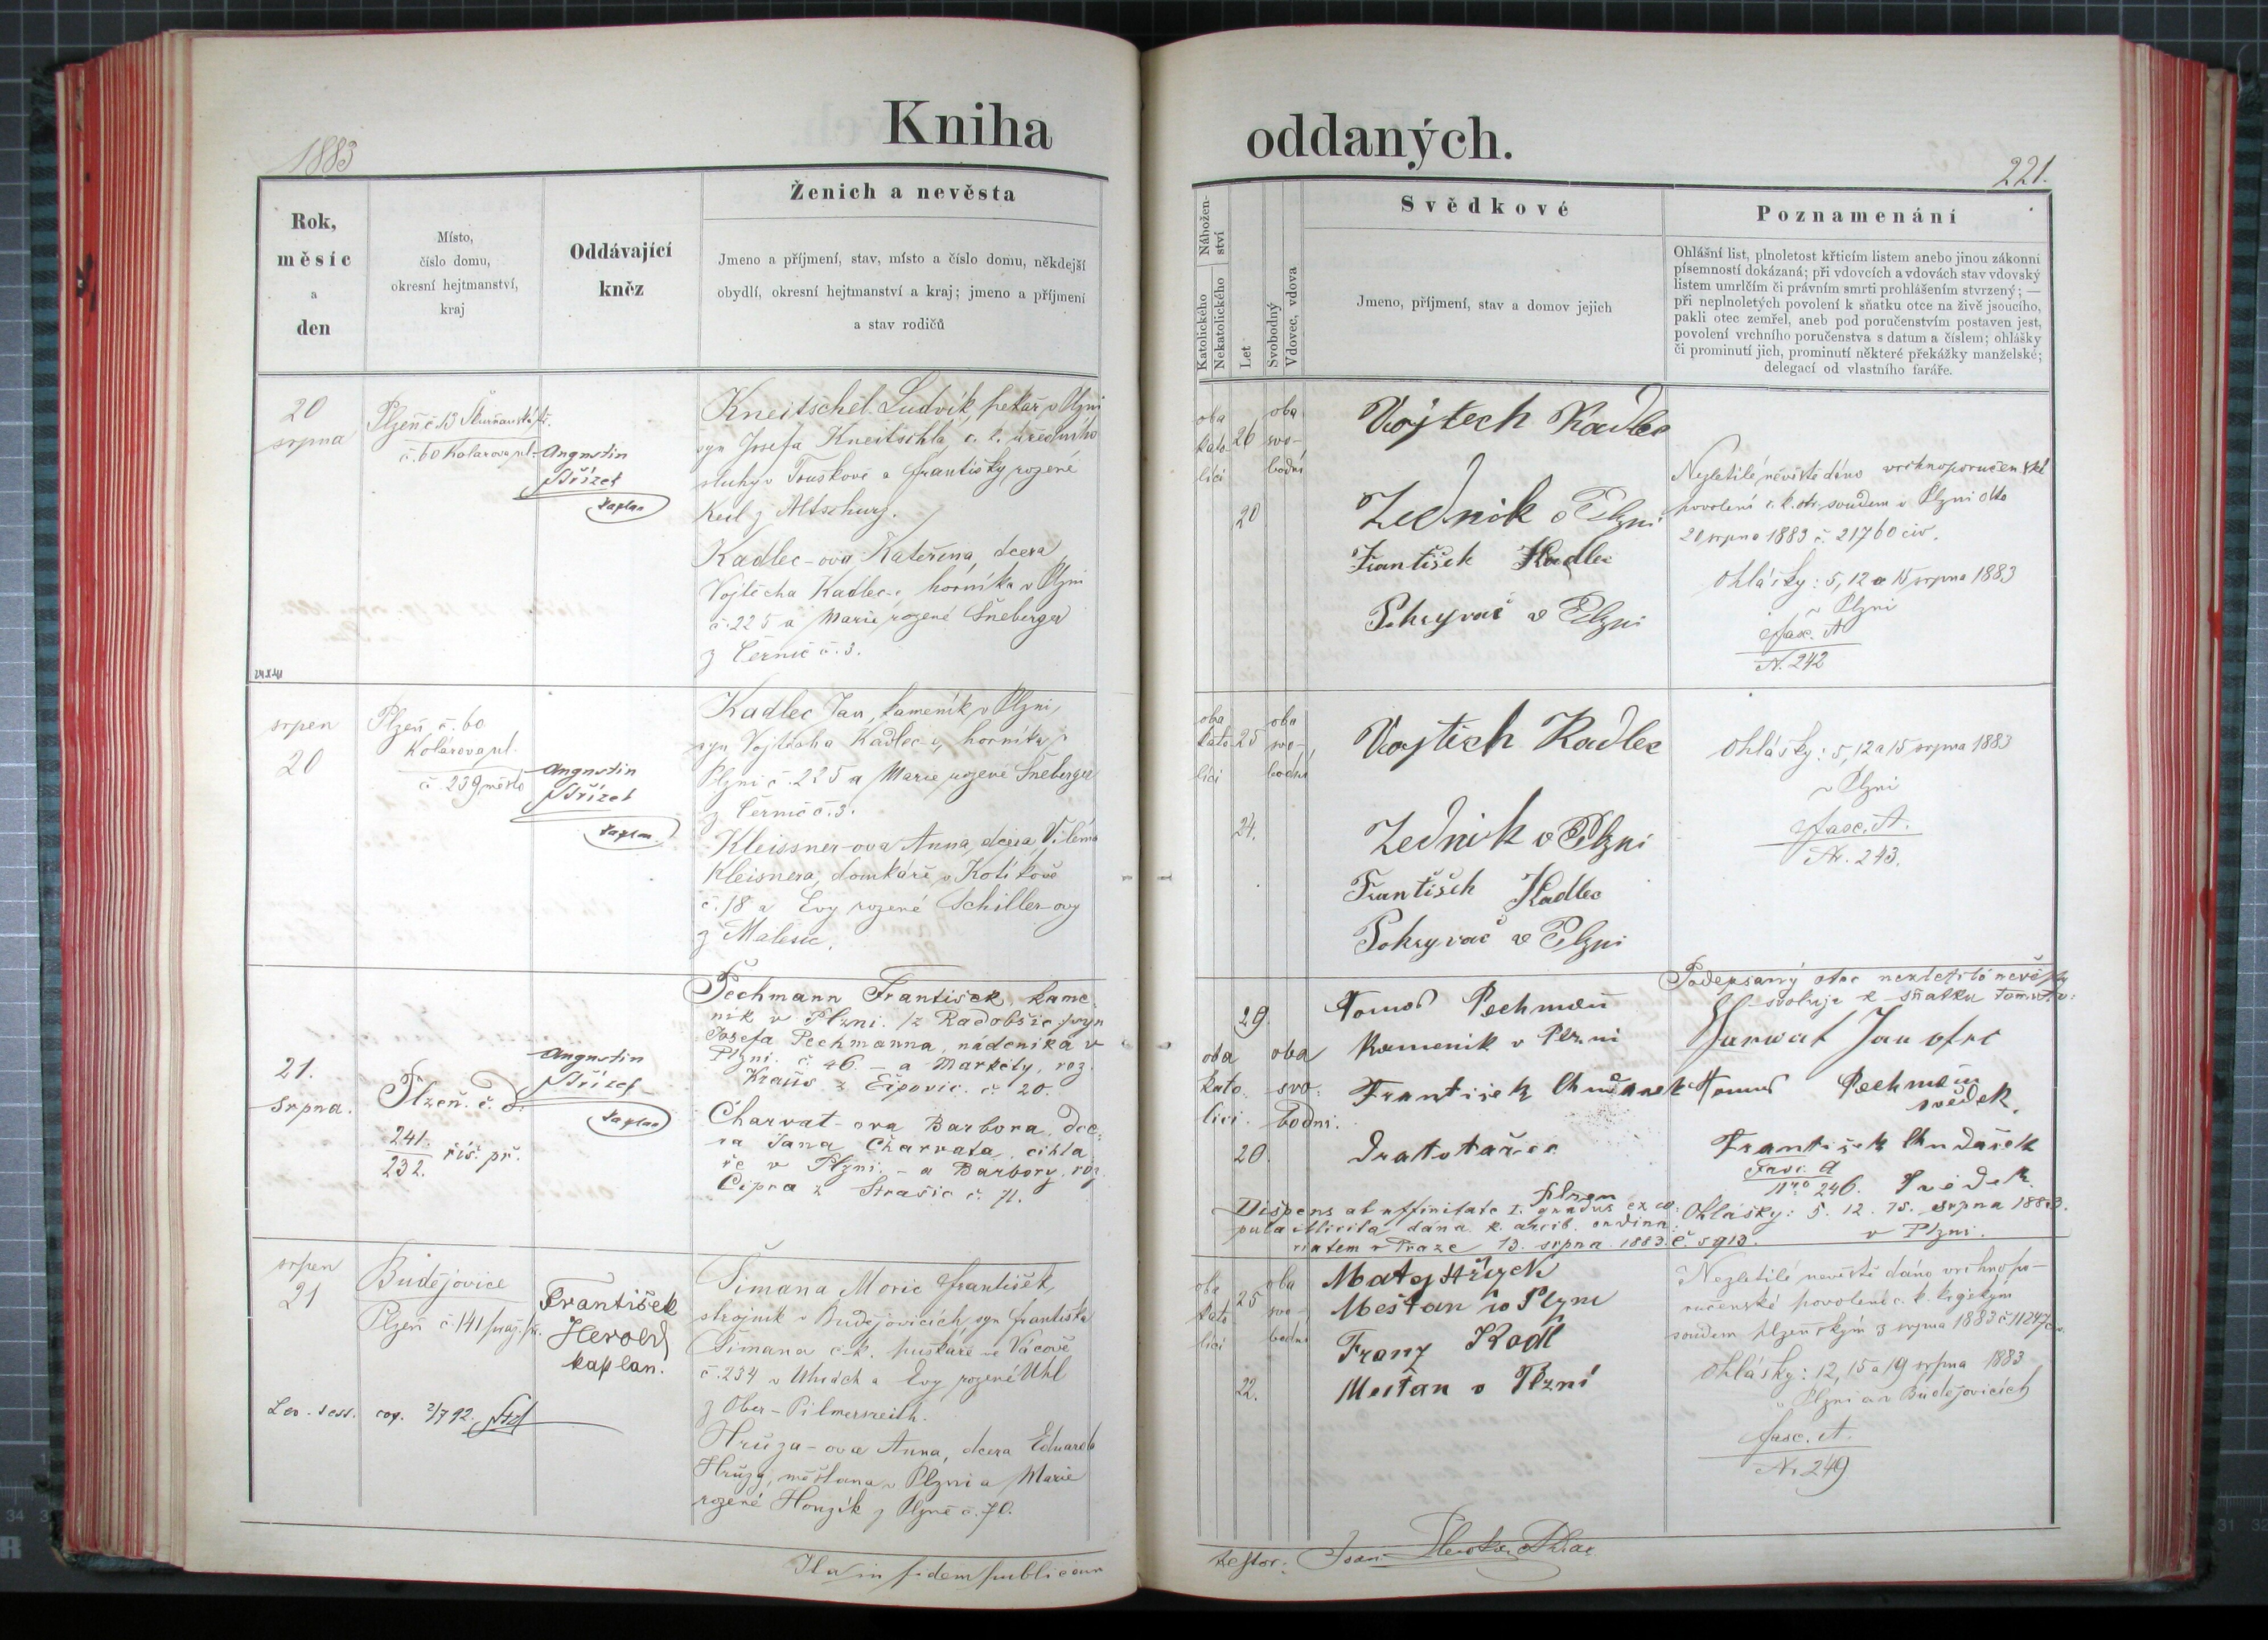 Kniha oddaných.
1883
221.
Rok,
měsíc
a
den
Místo,
číslo domu,
okresní hejtmanství,
kraj
Oddávající
kněz
Ženich a nevěsta
Jmeno a příjmení, stav, místo a číslo domu, někdejší
obydlí, okresní hejtmanství a kraj; jmeno a příjmení
a stav rodičů
Nábožen-
ství
Katolického
Nekatolického
Let
Svobodný
Vdovec, vdova
Svědkové
Jmeno, příjmení, stav a domov jejich
Poznamenání
Ohlášní list, plnoletost křticím listem anebo jinou zákonní
písemností dokázaná; při vdovcích a vdovách stav vdovský
listem umrlčím či právním smrti prohlášením stvrzený; —
při neplnoletých povolení k sňatku otce na živě jsoucího,
pakli otec zemřel, aneb pod poručenstvím postaven jest,
povolení vrchního poručenstva s datum a číslem; ohlášky
či prominutí jich, prominutí některé překážky manželské;
delegací od vlastního faráře.
20
srpna
Plzeň č 13
č. 60 Kolárova ul.
Augustin
Střízek
kaplan
Kneitschel Ludvík, pekař v Plzni
syn Josefa Kneitschla, c. k. úředního
sluhy v Touškově a Františky, rozené
Keil z
Kadlec-ova Kateřina, dcera
Vojtěcha Kadlec-a, horníka v Plzni
č. 225 a Marie, rozené Šneberger
z Černic č. 3.
oba
kato-
líci
26
20
oba
svo-
bodní
Vojtech Kadlec
Zednik v Plzni
František Kadlec
Pokryvač v Plzni
Nezletilé nevěstě dáno vrchnoporučenské
povolení c. k. okr. soudem v Plzni dto
20 srpna 1883 č. 21760 civ.
Ohlášky: 5, 12 a 15 srpna 1883
v Plzni
fasc. A
N. 242
srpen
20
Plzeň č. 60
Kolárova ul.
č. 239 město
Augustin
Střízek
kaplan
Kadlec Jan, kameník v Plzni,
syn Vojtěcha Kadlec-a, horníka v
Plzni č. 225 a Marie rozené Šneberger
z Černic č. 3.
Kleissner-ova Anna, dcera Viléma
Kleisnera, domkáře v Kotíkově
č. 18 a Evy rozené Schiller-ovy
z Malesic.
oba
kato-
líci
25
24.
oba
svo-
bodní
Vojtěch Kadlec
Zednik v Plzni
František Kadlec
Pokryvač v Plzni
Ohlášky: 5, 12 a 15 srpna 1883
v Plzni
fasc. A.
Nr. 243.
21.
srpna.
Plzeň. č. d.
241.
232. říš. př.
Augustin
Střízek
kaplan
Pechmann František, kame-
ník v Plzni. /z Radobšic/ syn
Josefa Pechmanna, nádeníka v
Plzni. č. 46. – a Markéty, roz.
Krauss z Ejpovic. č. 20.
Charvat-ova Barbora, dce-
ra Jana Charvata, cihlá-
ře v Plzni. – a Barbory, roz.
Cipra z Strašic č. 71.
oba
kato-
líci.
29.
20.
oba
svo-
bodni.
Tomáš Pechman
Kamenik v Plzni
Frantisek Chudaček
Podepsaný otec nezletilé nevěsty
svoluje k sňatku tomuto:
Harwat Jan otec
Tomáš Pechman
svědek.
František Chudaček
Svědek.
Fasc. A
Nro 246.
Dispens ab affinitate I. gradus ex co-
pula illicita dána k. arcib. ordina-
riatem v Praze 13. srpna 1883. č. 5913.
Ohlášky: 5. 12. 15. srpna 1883.
v Plzni.
srpen
21
Budějovice
Plzeň č. 141 praž. př.
František
Herold
kaplan.
Šimana Moric František,
strojník v Budějovicích, syn Františka
Šimana c. k. puškaře ve Vácově
č. 234 v Uhrách a Evy rozené Uhl
z Ober-Pilmersreith.
Hrůza-ova Anna, dcera Eduarda
Hrůzy, měšťana v Plzni a Marie
rozené Honzík z Plzně č. 70.
cop. 2/7 92.
oba
kato-
líci
25
22.
oba
svo-
bodni
Matej Střizek
Mešťan w Plzni
Franz Kodl
Mesťan v Plzni
Nezletilé nevěstě dáno vrchnopo-
ručenské povolení c. k. krajským
soudem plzeňským 3 srpna 1883 č. 11247 civ.
Ohlášky: 12, 15 a 19 srpna 1883
v Plzni a v Budějovicích
fasc. A.
Nr 249
Ita in fidem publicam
testor: